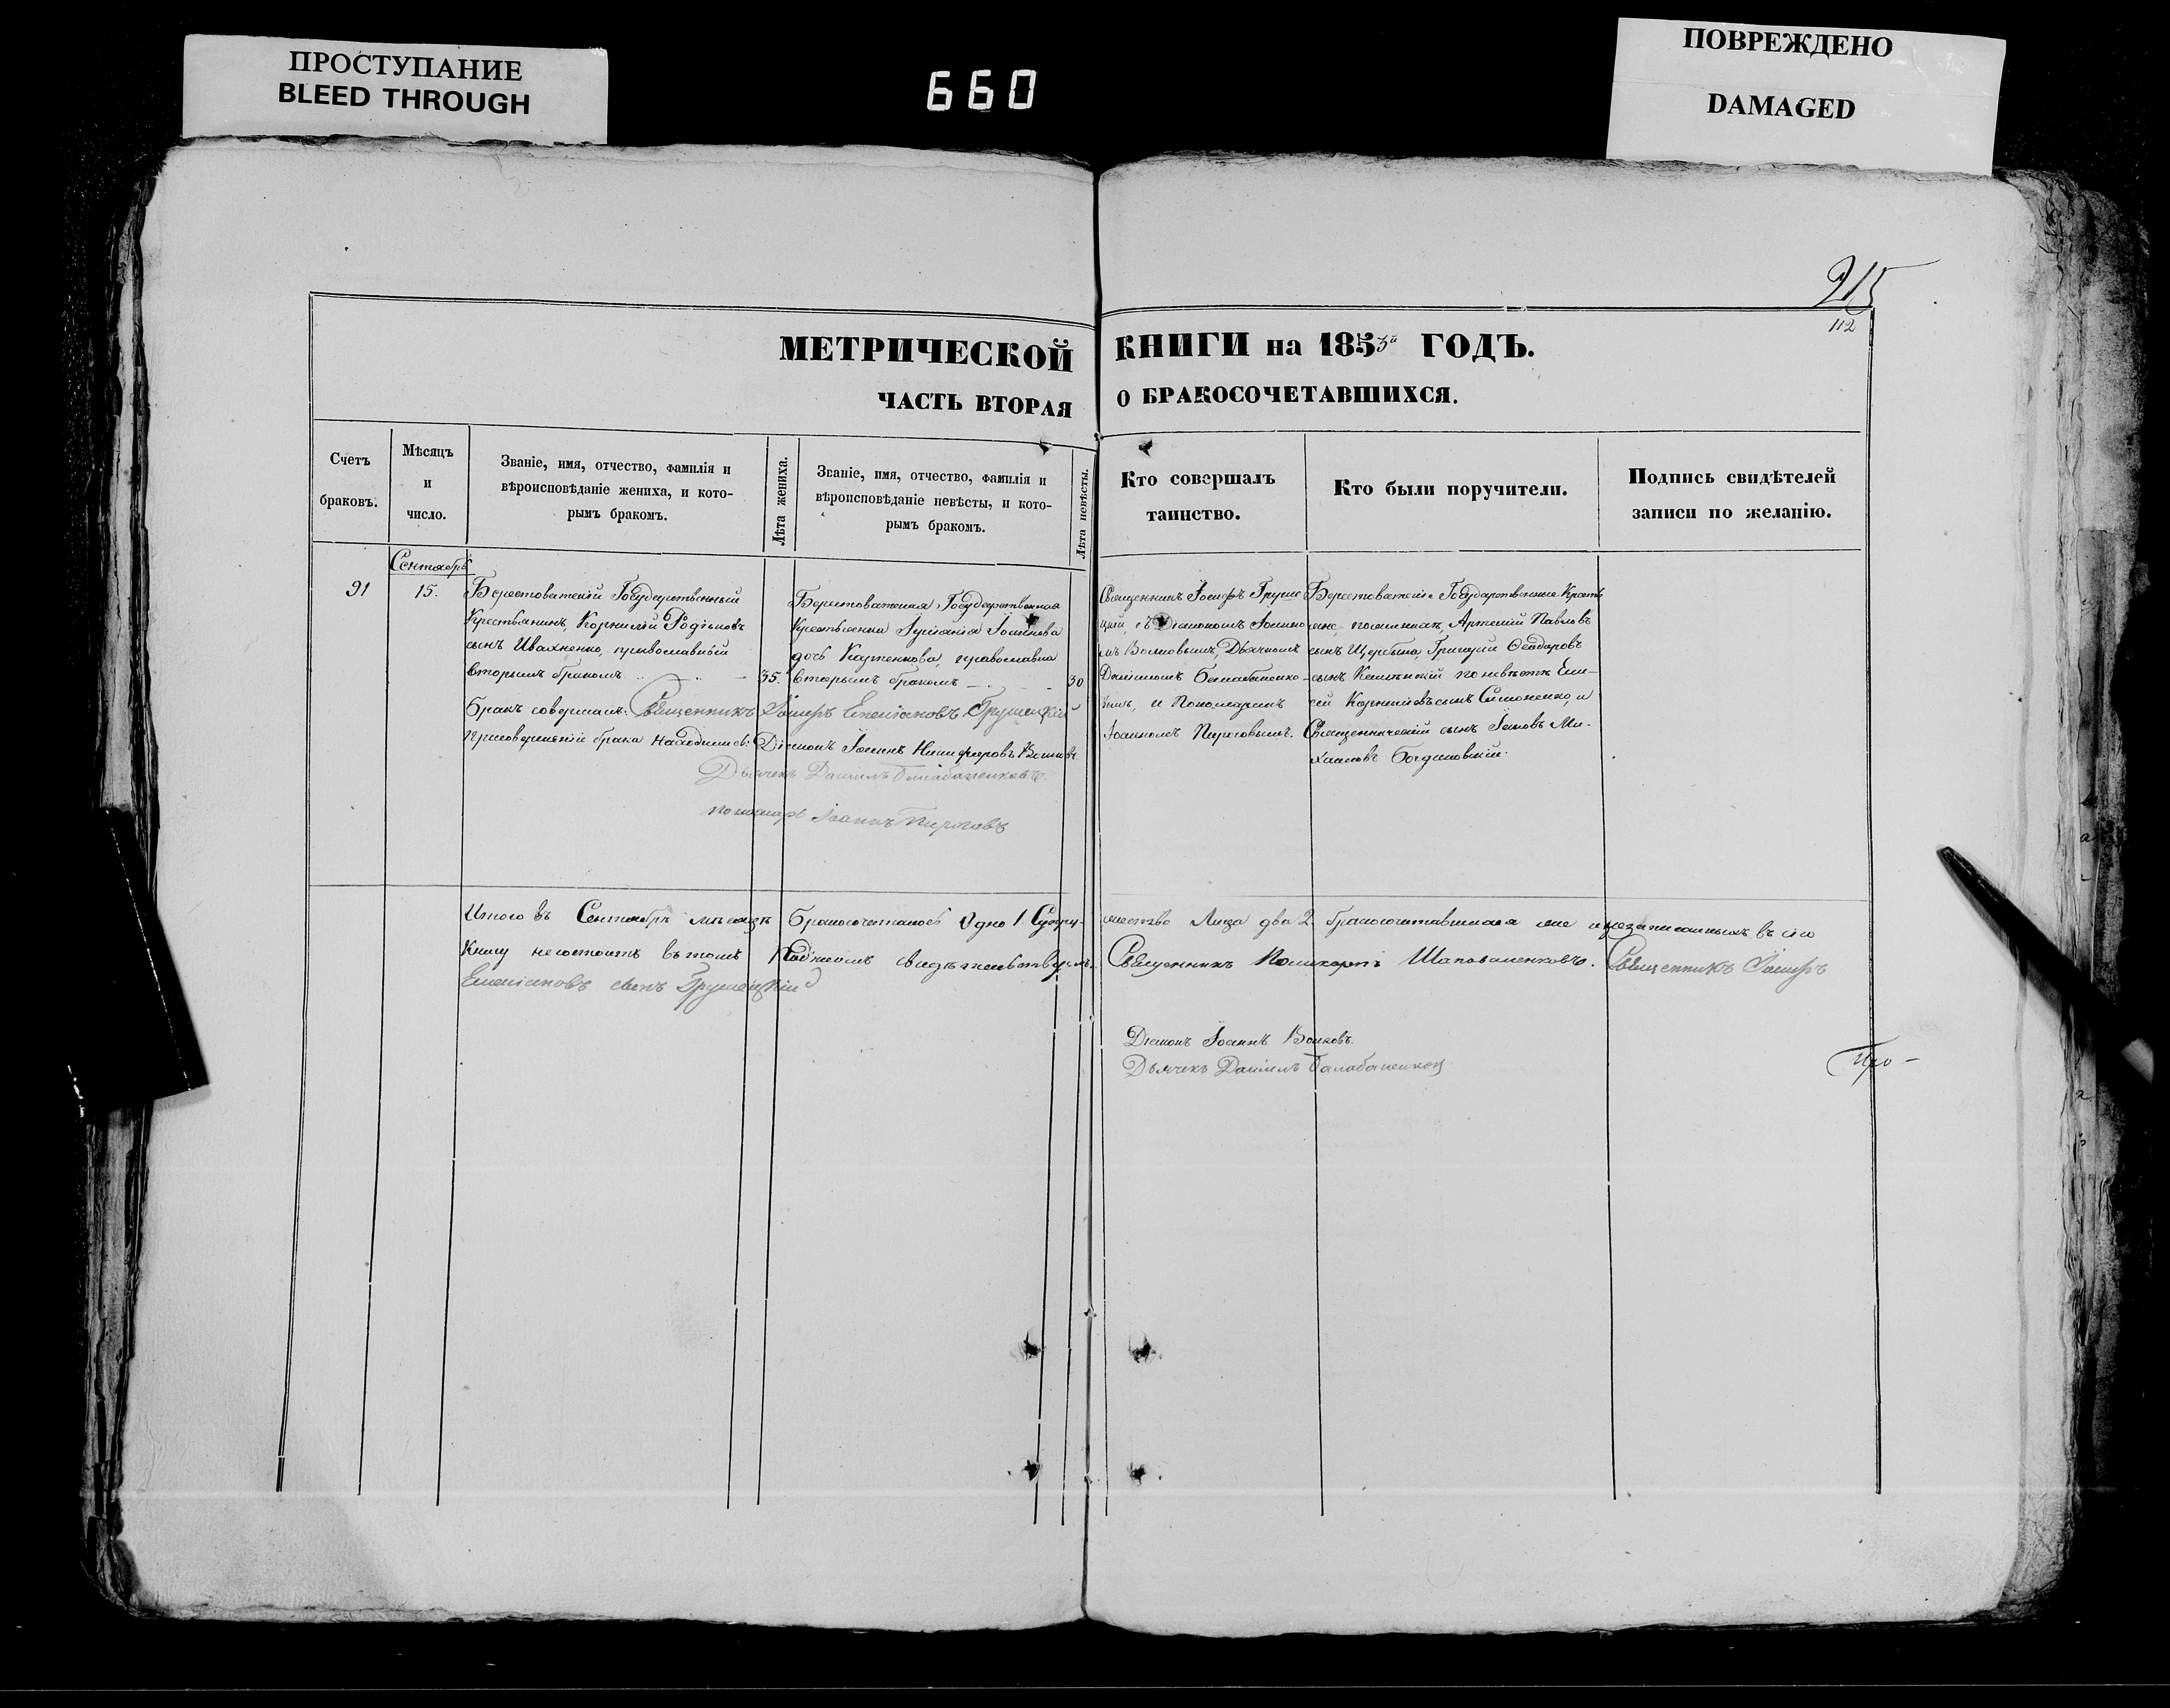 ПРОСТУПАНИЕ
BLEED THROUGH
660
ПОВРЕЖДЕНО
DAMAGED
215
112
МЕТРИЧЕСКОЙ КНИГИ на 1853й ГОДЪ.
ЧАСТЬ ВТОРАЯ О БРАКОСОЧЕТАВШИХСЯ.
Счетъ
браковъ.
Мѣсяцъ
и
число.
Званіе, имя, отчество, фамилія и
вѣроисповѣданіе жениха, и кото-
рымъ бракомъ.
Лѣта жениха.
Званіе, имя, отчество, фамилія и
вѣроисповѣданіе невѣсты, и кото-
рымъ бракомъ.
Лѣта невѣсты.
Кто совершалъ
таинство.
Кто были поручители.
Подпись свидѣтелей
записи по желанію.
Сентябрь
91
15.
Берестоватскій Государственный
Крестьянинъ, Корнилій Родіоновъ
сынъ Ивахненко, православный
вторымъ бракомъ
35.
Берестоватская Государственная
Крестьянка Іуліанія Іоаннова
дочь православна
вторымъ бракомъ
30
Священникъ Іосифъ Груше
цкій, съ Діакономъ Іоанно
мъ Волковымъ, Дьячкомъ
Даніиломъ Балабаненко-
вымъ, и Пономаремъ
Іоанномъ
Берестоватскіе Государственные Крестья
не, по женихѣ, Артемій Павловъ
сынъ Щербина, Григорій Ѳеодоровъ
сынъ по невѣстѣ Ели-
сей Корнѣевъ сынъ Симоненко, и
Священническій сынъ Іаковъ Ми-
хаиловъ Богдановскій.
Бракъ совершалъ: Священникъ Іосифъ Грушецкій
при совершеніи брака находились: Діаконъ Іоаннъ Никифоровъ Волковъ
Дьячекъ Даніилъ Балабаненковъ.
пономарь Іоаннъ
Итого въ Сентябрѣ мѣсяцѣ бракосочеталось Одно 1. Супру-жество Лица два 2 бракосочетавшихся не записанныхъ въ сію
Книгу не состоитъ въ томъ подписомъ свидѣтельствуемъ. Священникъ Поликарпъ Шаповаленковъ. Священникъ Іосифъ
сынъ Грушецкій
Діаконъ Іоаннъ Волковъ.
Дьячекъ Даніилъ Балабаненков